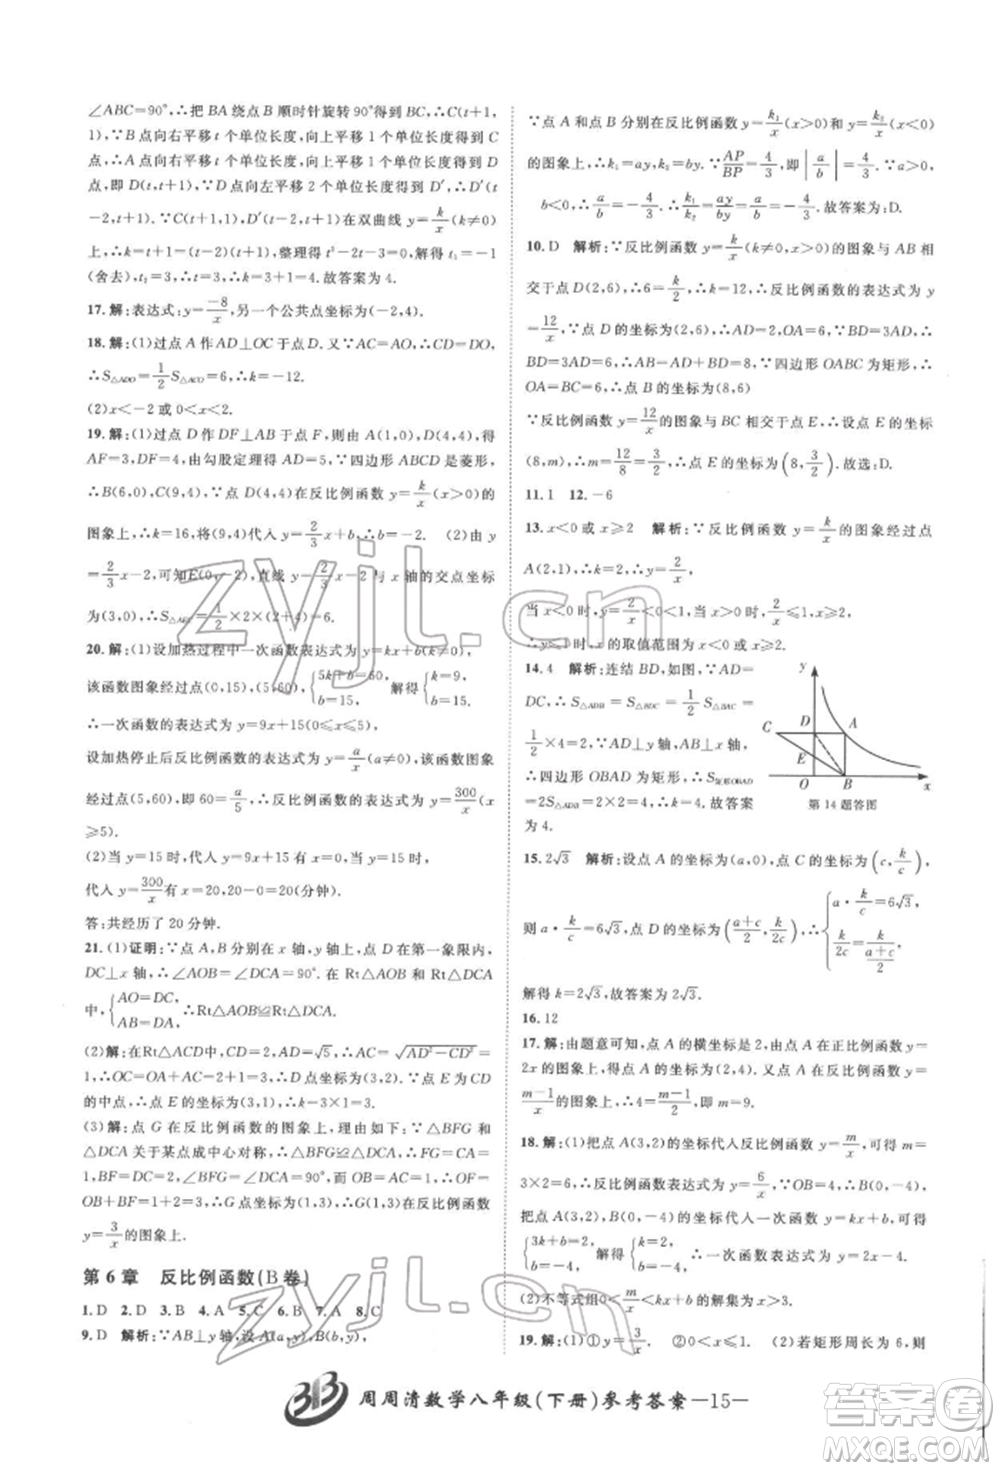 ∠ABC=90°,∴把 BA 绕点 B 顺时针旋转 90°得到 BC,∴C(t+1,
1).∵B 点向右平移 t 个单位长度,向上平移 1 个单位长度得到 C
点,∴A 点向右平移 t 个单位长度,向上平移 1 个单位长度得到 D
点,即 D(t,t+1),∵D 点向左平移 2 个单位长度得到 D′,∴D′(t
-2,t+1).∵C(t+1,1),D′(t-2,t+1)在双曲线 y=k/x(k≠0)
上,∴k=t+1=(t-2)(t+1),整理得 t²-2t-3=0,解得 t₁=-1
(舍去),t₂=3,∴t=3,∴k=3+1=4.故答案为 4.
17.解:表达式:y=-8/x,另一个公共点坐标为(-2,4).
18.解:(1)过点 A 作 AD⊥OC 于点 D.又∵AC=AO,∴CD=DO,
∴S△ADO=1/2 S△ACO=6,∴k=-12.
(2)x<-2 或 0<x<2.
19.解:(1)过点 D 作 DF⊥AB 于点 F,则由 A(1,0),D(4,4),得
AF=3,DF=4,由勾股定理得 AD=5,∵四边形 ABCD 是菱形,
∴B(6,0),C(9,4).∵点 D(4,4)在反比例函数 y=k/x(x>0)的
图象上,∴k=16,将(9,4)代入 y=2/3x+b,∴b=-2. (2)由 y=
2/3x-2,可知 E(0,-2),直线 y=2/3x-2 与 x 轴的交点坐标
为(3,0),∴S△AEC=1/2×2×(2+4)=6.
20.解:(1)设加热过程中一次函数表达式为 y=kx+b(k≠0),∵
该函数图象经过点(0,15),(5,60),{5k+b=60, b=15, 解得{k=9, b=15,
∴一次函数的表达式为 y=9x+15(0≤x≤5),
设加热停止后反比例函数的表达式为 y=a/x(a≠0),该函数图象
经过点(5,60),∴60=a/5,∴a=300,∴y=300/x(x
≥5).
(2)当 y=15 时,代入 y=9x+15,有 x=0,当 y=15 时,
代入 y=300/x有 x=20,20-0=20(分钟).
答:共经历了 20 分钟.
21.(1)证明:∵点 A,B 分别在 x 轴,y 轴上,点 D 在第一象限内,
DC⊥x 轴,∴∠AOB=∠DCA=90°.在 Rt△AOB 和 Rt△DCA
中,{AO=DC, AB=DA, ∴Rt△AOB≌Rt△DCA.
(2)解:在Rt△ACD中,CD=2,AD=√5,∴AC=√(AD²-CD²)=
1,∴OC=OA+AC=2+1=3,∴D 点坐标为(3,2).∵点 E 为 CD
的中点,∴点 E 的坐标为(3,1),∴k=3×1=3.
(3)解:点 G 在反比例函数的图象上,理由如下:∵△BFG 与
△DCA 关于某点成中心对称,∴△BFG≌△DCA,∴FG=CA=
1,BF=DC=2,∠BFG=∠DCA=90°,而 OB=AC=1,∴OF=
OB+BF=1+2=3,∴G 点坐标为(1,3),∴G 在反比例函数
y=3/x的图象上.
第 6 章 反比例函数(B 卷)
1.D 2.D 3.B 4.A 5.C 6.B 7.A 8.C
9.D 解析:∵AB⊥y 轴,设A(a,y),B(b,y),
∵点 A 和点 B 分别在反比例函数 y=k₁/x(x>0)和 y=k₂/x(x<0)
的图象上,∴k₁=ay,k₂=by.∵AP/BP=4/3,即|a/b|=4/3,∵a>0,
b<0,∴a/b=-4/3,∴k₁/k₂=ay/by=a/b=-4/3,故答案为:D.
10.D 解析:∵反比例函数 y=k/x(k≠0,x>0)的图象与 AB 相
交于点 D(2,6),∴6=k/2,∴k=12,∴反比例函数的表达式为 y
=12/x,∵点 D(2,6),∴AD=2,AO=6,∵BD=3AD,∴
BD=3AD=3×2=6,∴AB=2+6=8.∵四边形 OABC 为矩形,∴
OA=BC=6,∴点 B 的坐标为(8,6)
∵反比例函数 y=12/x的图象与 BC 相交于点 E,∴设点 E
(8,m),∴m=12/8=3/2,∴点 E 的坐标为(8,3/2).故选:D.
11.1 12.-6
13.x<0 或 x≥2 解析:∵反比例函数 y=k/x的图象经过点
A(2,1),∴k=2×1=2,∴y=2/x,
当 x<0 时,y=2/x<0<1;当 x>0 时,y=2/x≤1,x≥2,
∴y≤1 时,x 的取值范围为 x<0 或 x≥2.
14.4 解析:连结 BD,如图,∵AD=
DC,∴S△ADB=S△BDC=1/2 S△BAC=
1/2×4=2.∵AD⊥y 轴,AB⊥x 轴,
∴四边形 OBAD 为矩形,∴S矩形OBAD=
2S△ADB=2×2=4,∴k=4.故答案
为 4.
y
C D A
E
O B x
第 14 题答图
15.2√3 解析:设点 A 的坐标为(a,0),点 C 的坐标为(c,k/c),
则 a·k/c=6√3,点 D 的坐标为((a+c)/2,k/2c),∴{a·k/c=6√3, k/2c=k/((a+c)/2),
解得 k=2√3,故答案为 2√3.
16.12
17.解:由题意可知,点 A 的横坐标是 2,由点 A 在正比例函数 y=
2x 的图象上,得点 A 的坐标为(2,4).又∵点 A 在反比例函数 y=
(m-1)/x的图象上,∴4=(m-1)/2,∴m=9.
18.解:(1)把点 A(3,2)的坐标代入反比例函数 y=m/x,可得 m=
3×2=6,∴反比例函数的表达式为 y=6/x,∵OB=4,∴B(0,-4),
把点 A(3,2),B(0,-4)的坐标代入一次函数 y=kx+b,可得
{3k+b=2, b=-4, 解得{k=2, b=-4, ∴一次函数的表达式为 y=2x-4;
(2)不等式组0<m/x<kx+b 的解集为 x>3.
19.解:(1)①y=3/x. ②0<x≤1. (2)若矩形周长为 6,则
周周清数学八年级(下册)参考答案—15—
zyjl.cn
zyjl.cn
答案圈
MXQE.COM